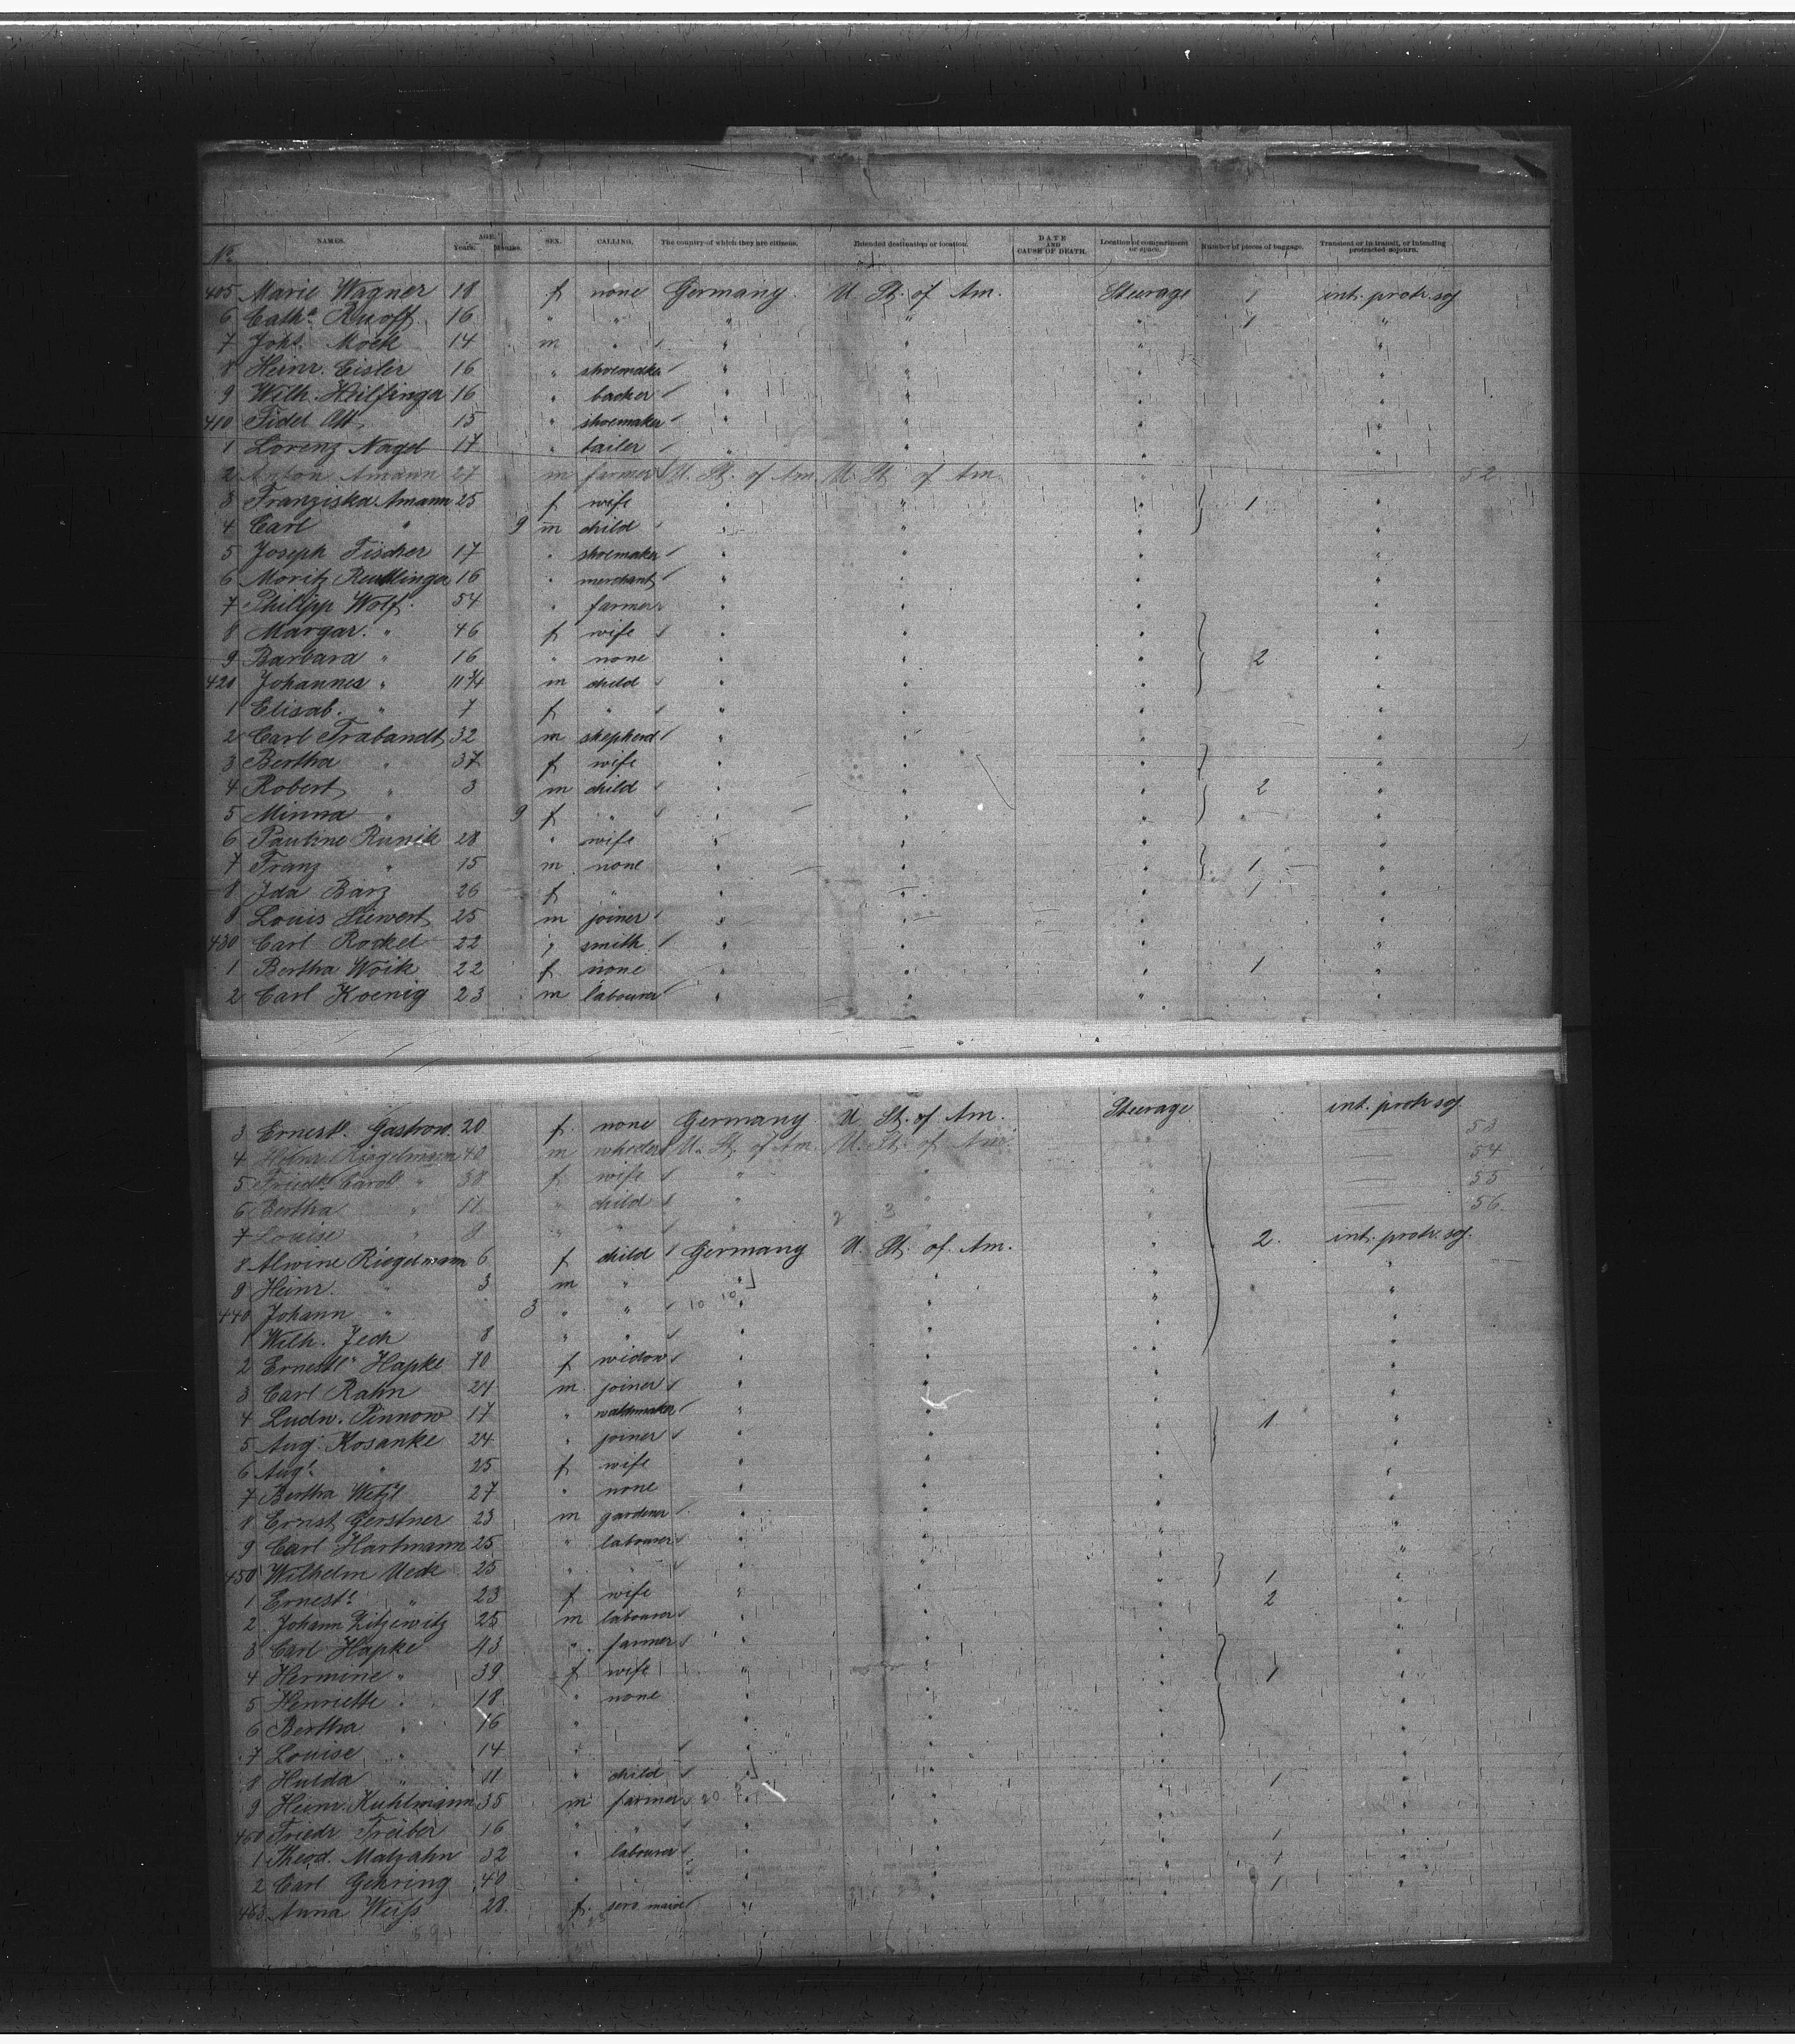 No. NAMES. AGE. Years. Months. SEX. CALLING. The country of which they are citizens. Intended destination or location. DATE AND CAUSE OF DEATH. Location of compartment or space. Number of pieces of baggage. Transient or in transit, or intending protracted sojourn.
405 Marie Wagner 18 f none Germany U. St. of Am. Steerage 1 int. protr. soj
6 Catha. Ruoff 16 " " " " " 1 "
7 Johs. Mock 14 m " " " " "
8 Heinr. Eisler 16 " shoemaker " " " "
9 Wilh. Heilfinger 16 " backer " " " "
410 Fidel Ott 15 " shoemaker " " " "
1 Lorenz Nagel 17 " tailer " " " "
2 Anton Amann 27 m farmer U. St. of Am. U. St. of Am. " 52
3 Franziska Amann 25 f wife " " " 1 "
4 Carl " 9 m child " " " "
5 Joseph Fischer 17 " shoemaker " " " "
6 Moritz Reutlinger 16 " merchant " " " "
7 Philipp Wolf 54 " farmer " " " "
8 Margar. " 46 f wife " " " "
9 Barbara " 16 " none " " " 2 "
420 Johannes " 11 3/4 m child " " " "
1 Elisab. " 7 f " " " " "
2 Carl Trabandt 32 m shepherd " " " "
3 Bertha " 37 f wife " " " "
4 Robert " 3 m child " " " 2 "
5 Minna " 9 f " " " " "
6 Pauline Runik 28 " wife " " " "
7 Franz " 15 m none " " " 1 "
8 Ida Barz 26 f " " " " 1 "
9 Louis Siewert 25 m joiner " " " "
430 Carl Rockel 22 " smith " " " "
1 Bertha Woik 22 f none " " " 1 "
2 Carl Koenig 23 m labourer " " " "
3 Ernest. Gastrow 20 f. none Germany U. St. of Am. Steerage int. protr. soj.
4 Heinr. Riegelmann 40 m U. St. of Am. U. St. of Am. " 53
5 Friedke. Carol. " 38 f wife " " " 54
6 Bertha " 11 " child " " " 55
7 Louise " 8 " " " " 56
8 Alwine Riegelmann 6 f child Germany U. St. of Am. " 2. int. protr. soj.
9 Heinr. " 3 m " " " " "
440 Johann " 3 " " " " " "
1 Wilh. Jech 8 " " " " " "
2 Ernestle. Hapke 70 f widow " " " "
3 Carl Rahn 24 m joiner " " " "
4 Ludw. Pinnow 17 " " " " 1 "
5 Aug. Kosanke 24 " joiner " " " "
6 Auge. " 25 f wife " " " "
7 Bertha Wetzl 27 " none " " " "
8 Ernst Gerstner 23 m gardener " " " "
9 Carl Hartmann 25 " labourer " " " "
450 Wilhelm Ueck 25 " " " " " 1 "
1 Ernest. " 23 f wife " " " 2 "
2 Johann Zitzewitz 25 m labourer " " " "
3 Carl Hapke 43 " farmer " " " "
4 Hermine " 39 f wife " " " 1 "
5 Henriette " 18 " none " " " "
6 Bertha " 16 " " " " "
7 Louise " 14 " " " " "
8 Hulda " 11 " child " " " 1 "
9 Heinr. Kuhlmann 35 m farmer " " " "
460 Friedr. Treiber 16 " " " " " 1 "
1 Theod. Malzahn 32 " labourer " " " 1 "
2 Carl Gehring 40 " " " " " 1 "
463 Anna Weiss 28 f. serv. maid "